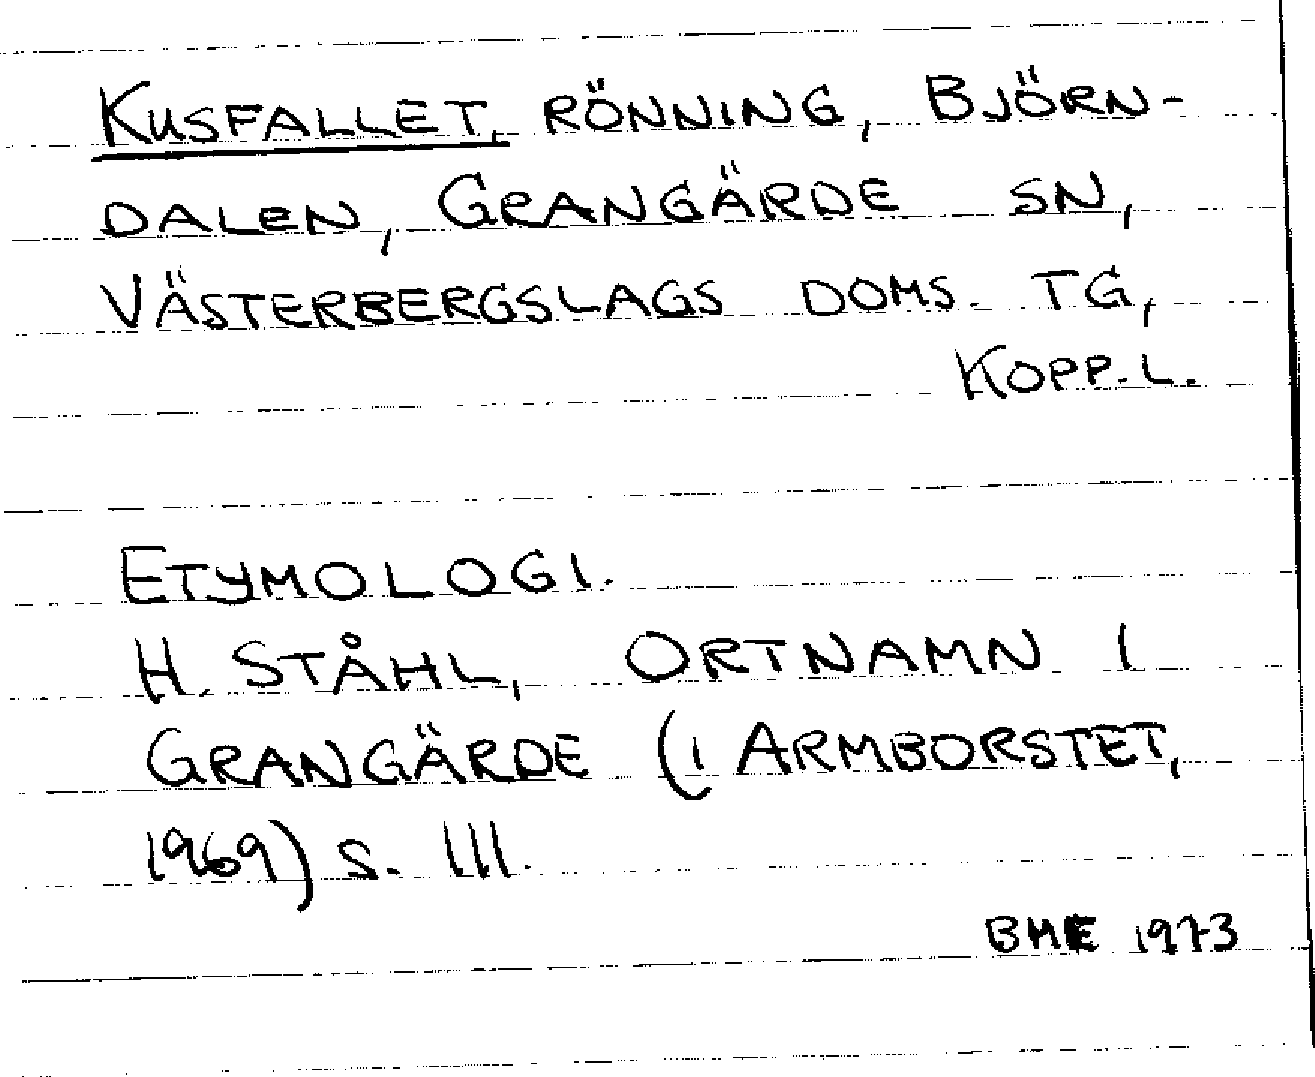 KUSFALLET, RÖNNING, BJÖRN-
DALEN, GRANGÄRDE SN,
VÄSTERBERGSLAGS DOMS. TG,
KOPP. L.
ETYMOLOGI.
H. STÅHL, ORTNAMN I
GRANGÄRDE (I ARMBORSTET,
1969) S. 111.
BME 1973